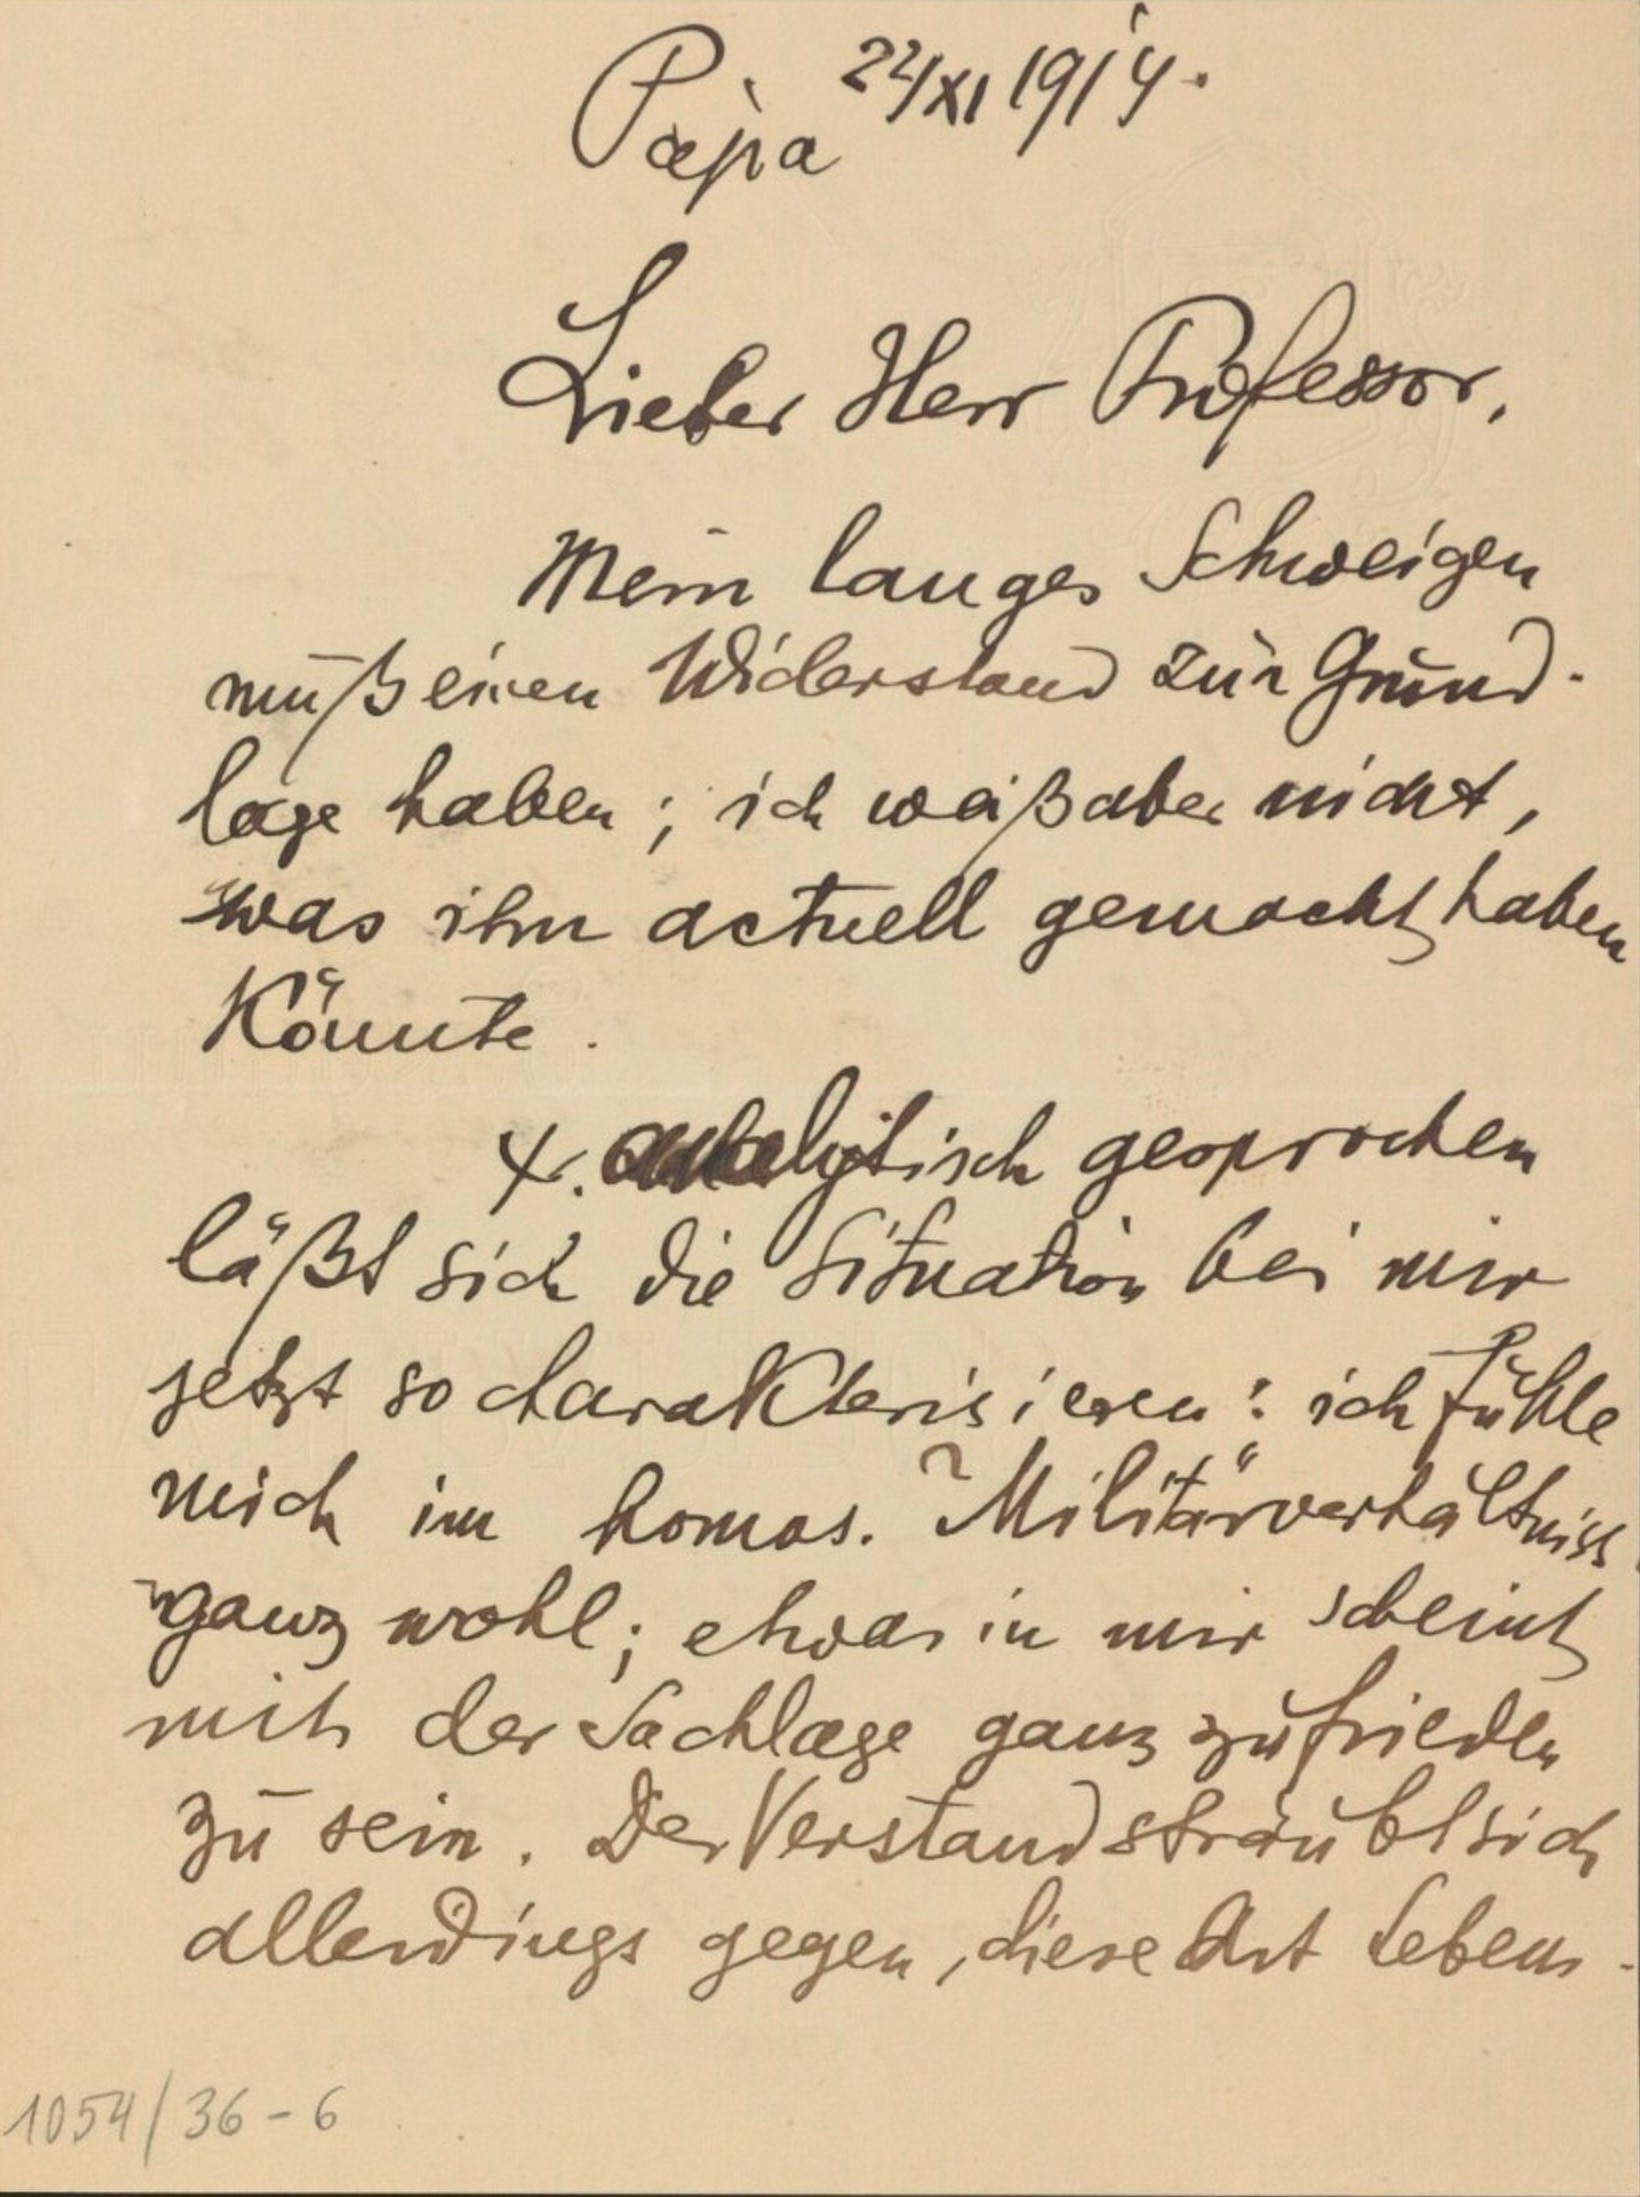 Pápa 22/XI 1914.
Lieber Herr Professor,
Mein langes Schweigen
muß einen Widerstand zur Grund-
lage haben; ich weiß aber nicht,
was ihn actuell gemacht haben
könnte.
analytisch gesprochen
läßt sich die Situation bei mir
jetzt so charakterisieren: ich fühle
mich im homos. "Militärverhältniss"
ganz wohl; etwas in mir scheint
mit der Sachlage ganz zufrieden
zu sein. Der Verstand sträubt sich
allerdings gegen diese Art Lebens-
1054/36-6